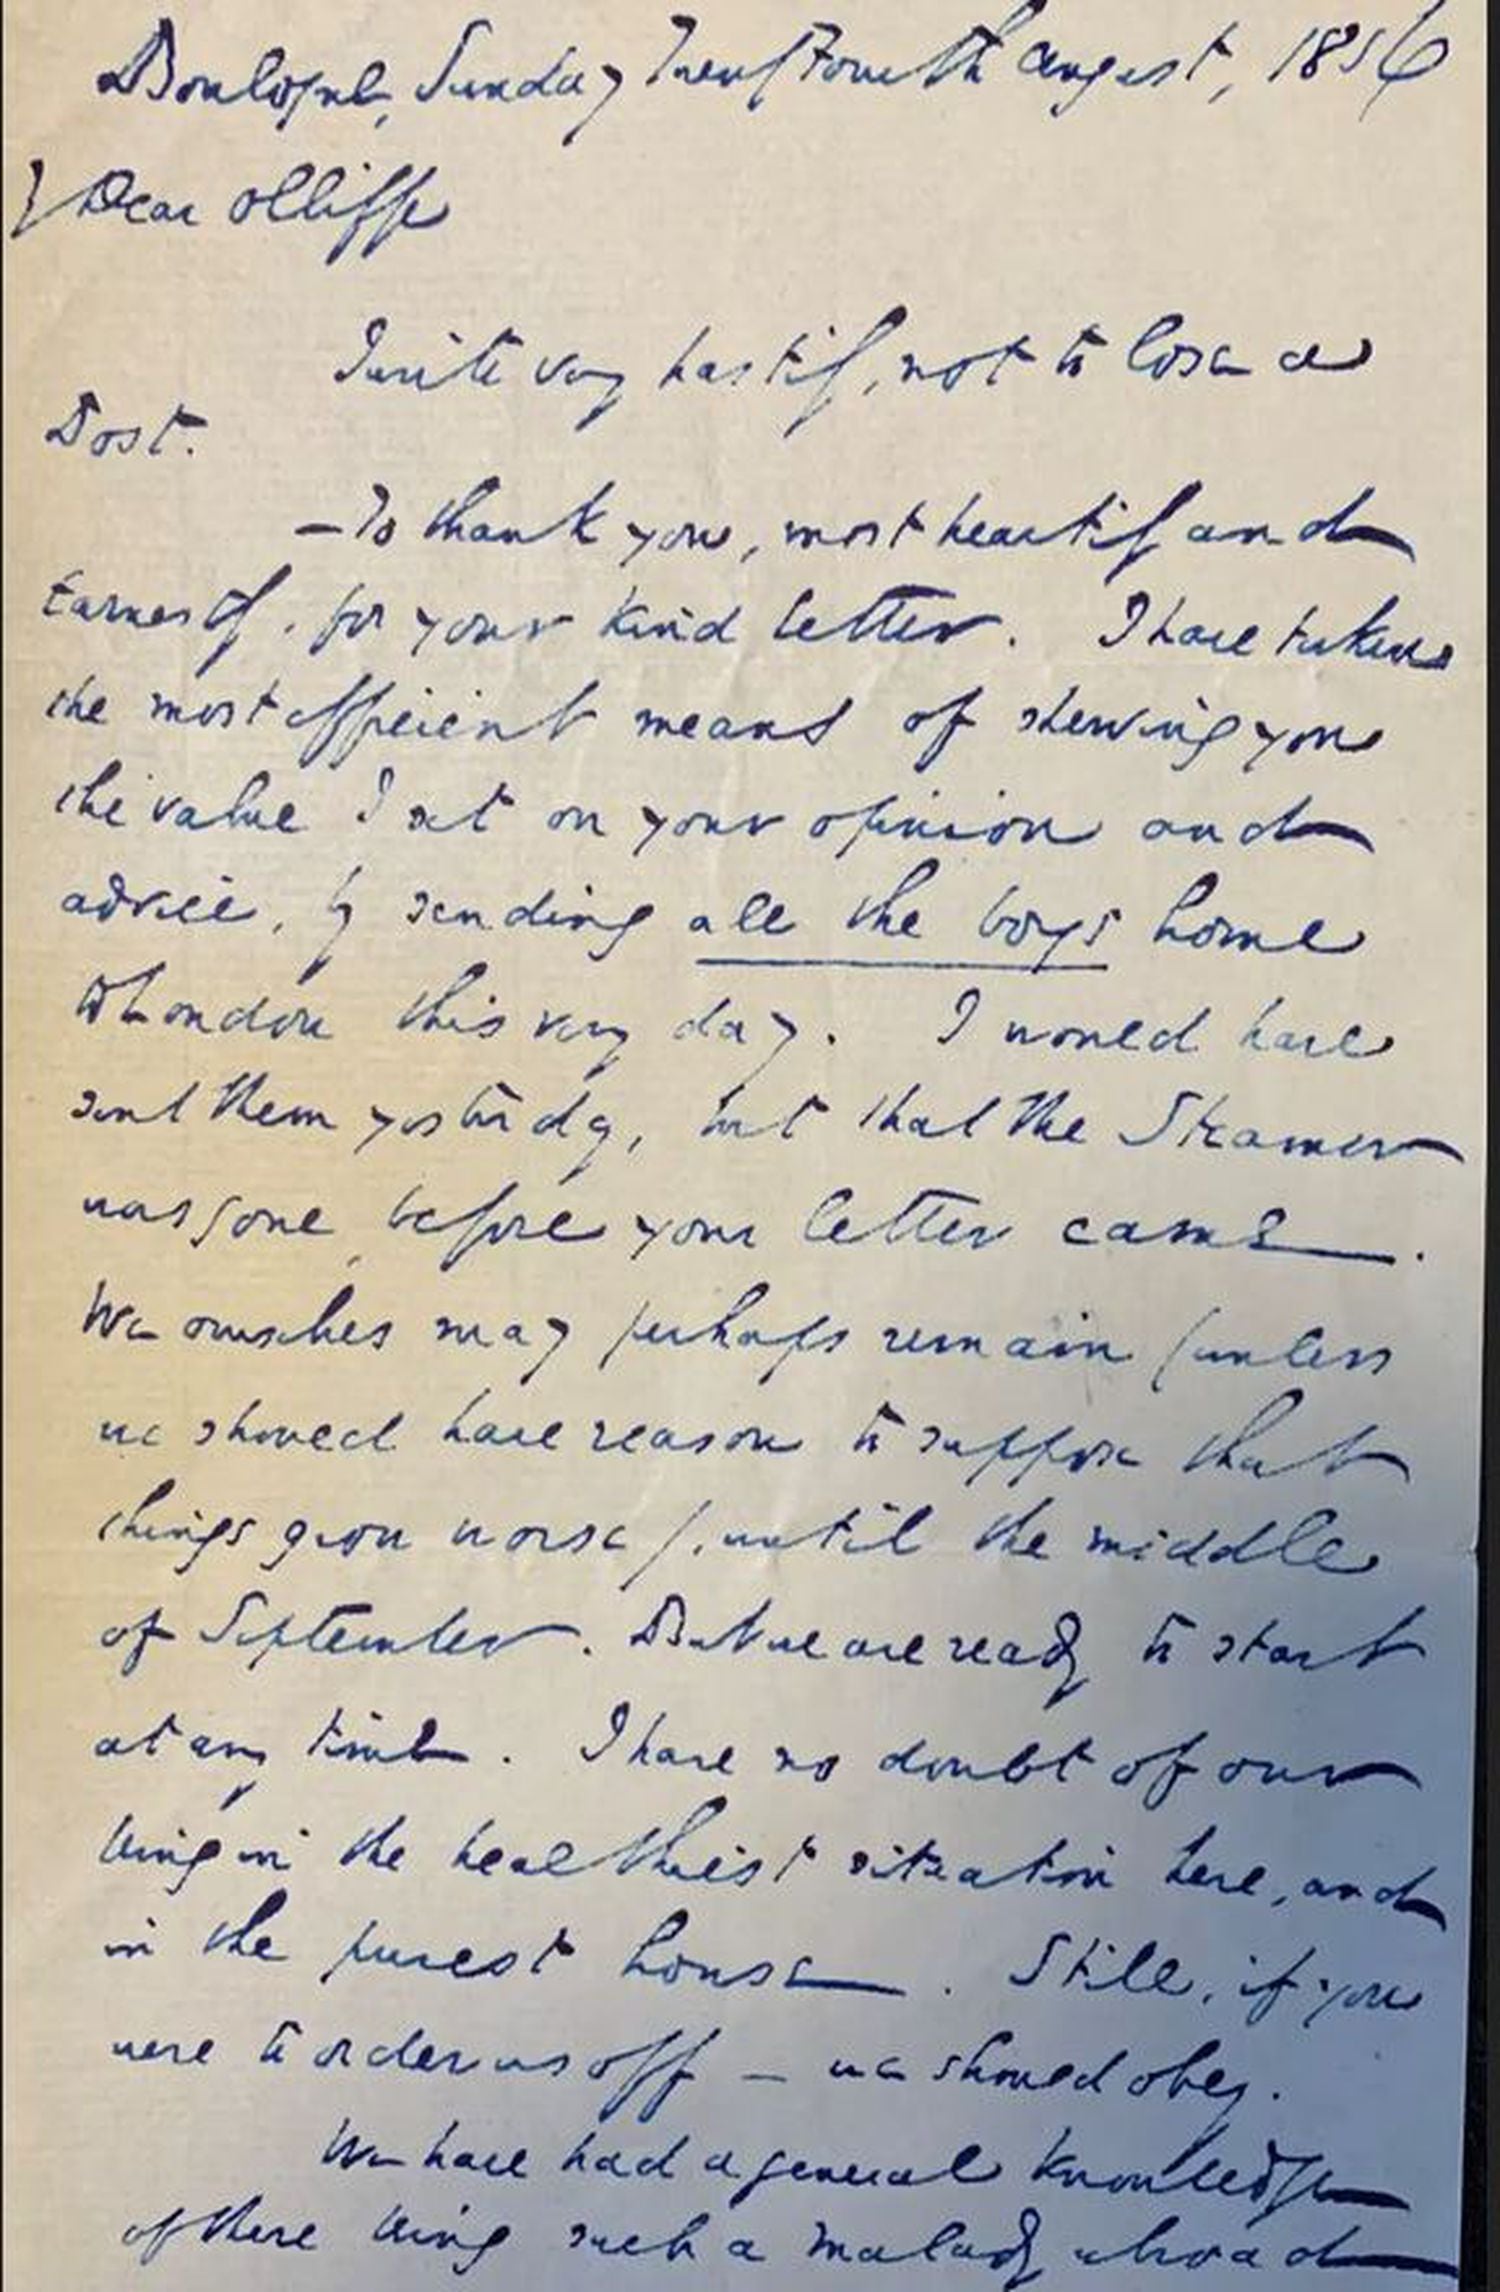 Boulogne, Sunday Twenty Fourth August, 1856
My Dear Olliffe
I write very hastily, not to lose a
Post.
— To thank you, most heartily and
earnestly, for your kind letter. I have taken
the most efficient means of shewing you
the value I set on your opinion and
advice, by sending all the boys home
to London this very day. I would have
sent them yesterday, but that the Steamer
was gone before your letter came.
We ourselves may perhaps remain (unless
we should have reason to suppose that
things grow worse), until the middle
of September. But we are ready to start
at any time. I have no doubt of our
being in the healthiest situation here, and
in the purest house. Still, if you
were to order us off — we should obey.
We have had a general knowledge
of there being such a malady abroad